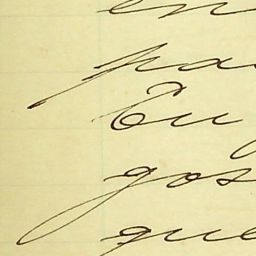 en
pa
Eu
gos
que